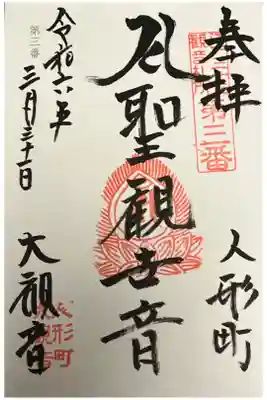 奉拝
第三番
人形町
聖觀世音
大観音
人形町
第三番
令和六年
三月三十一日